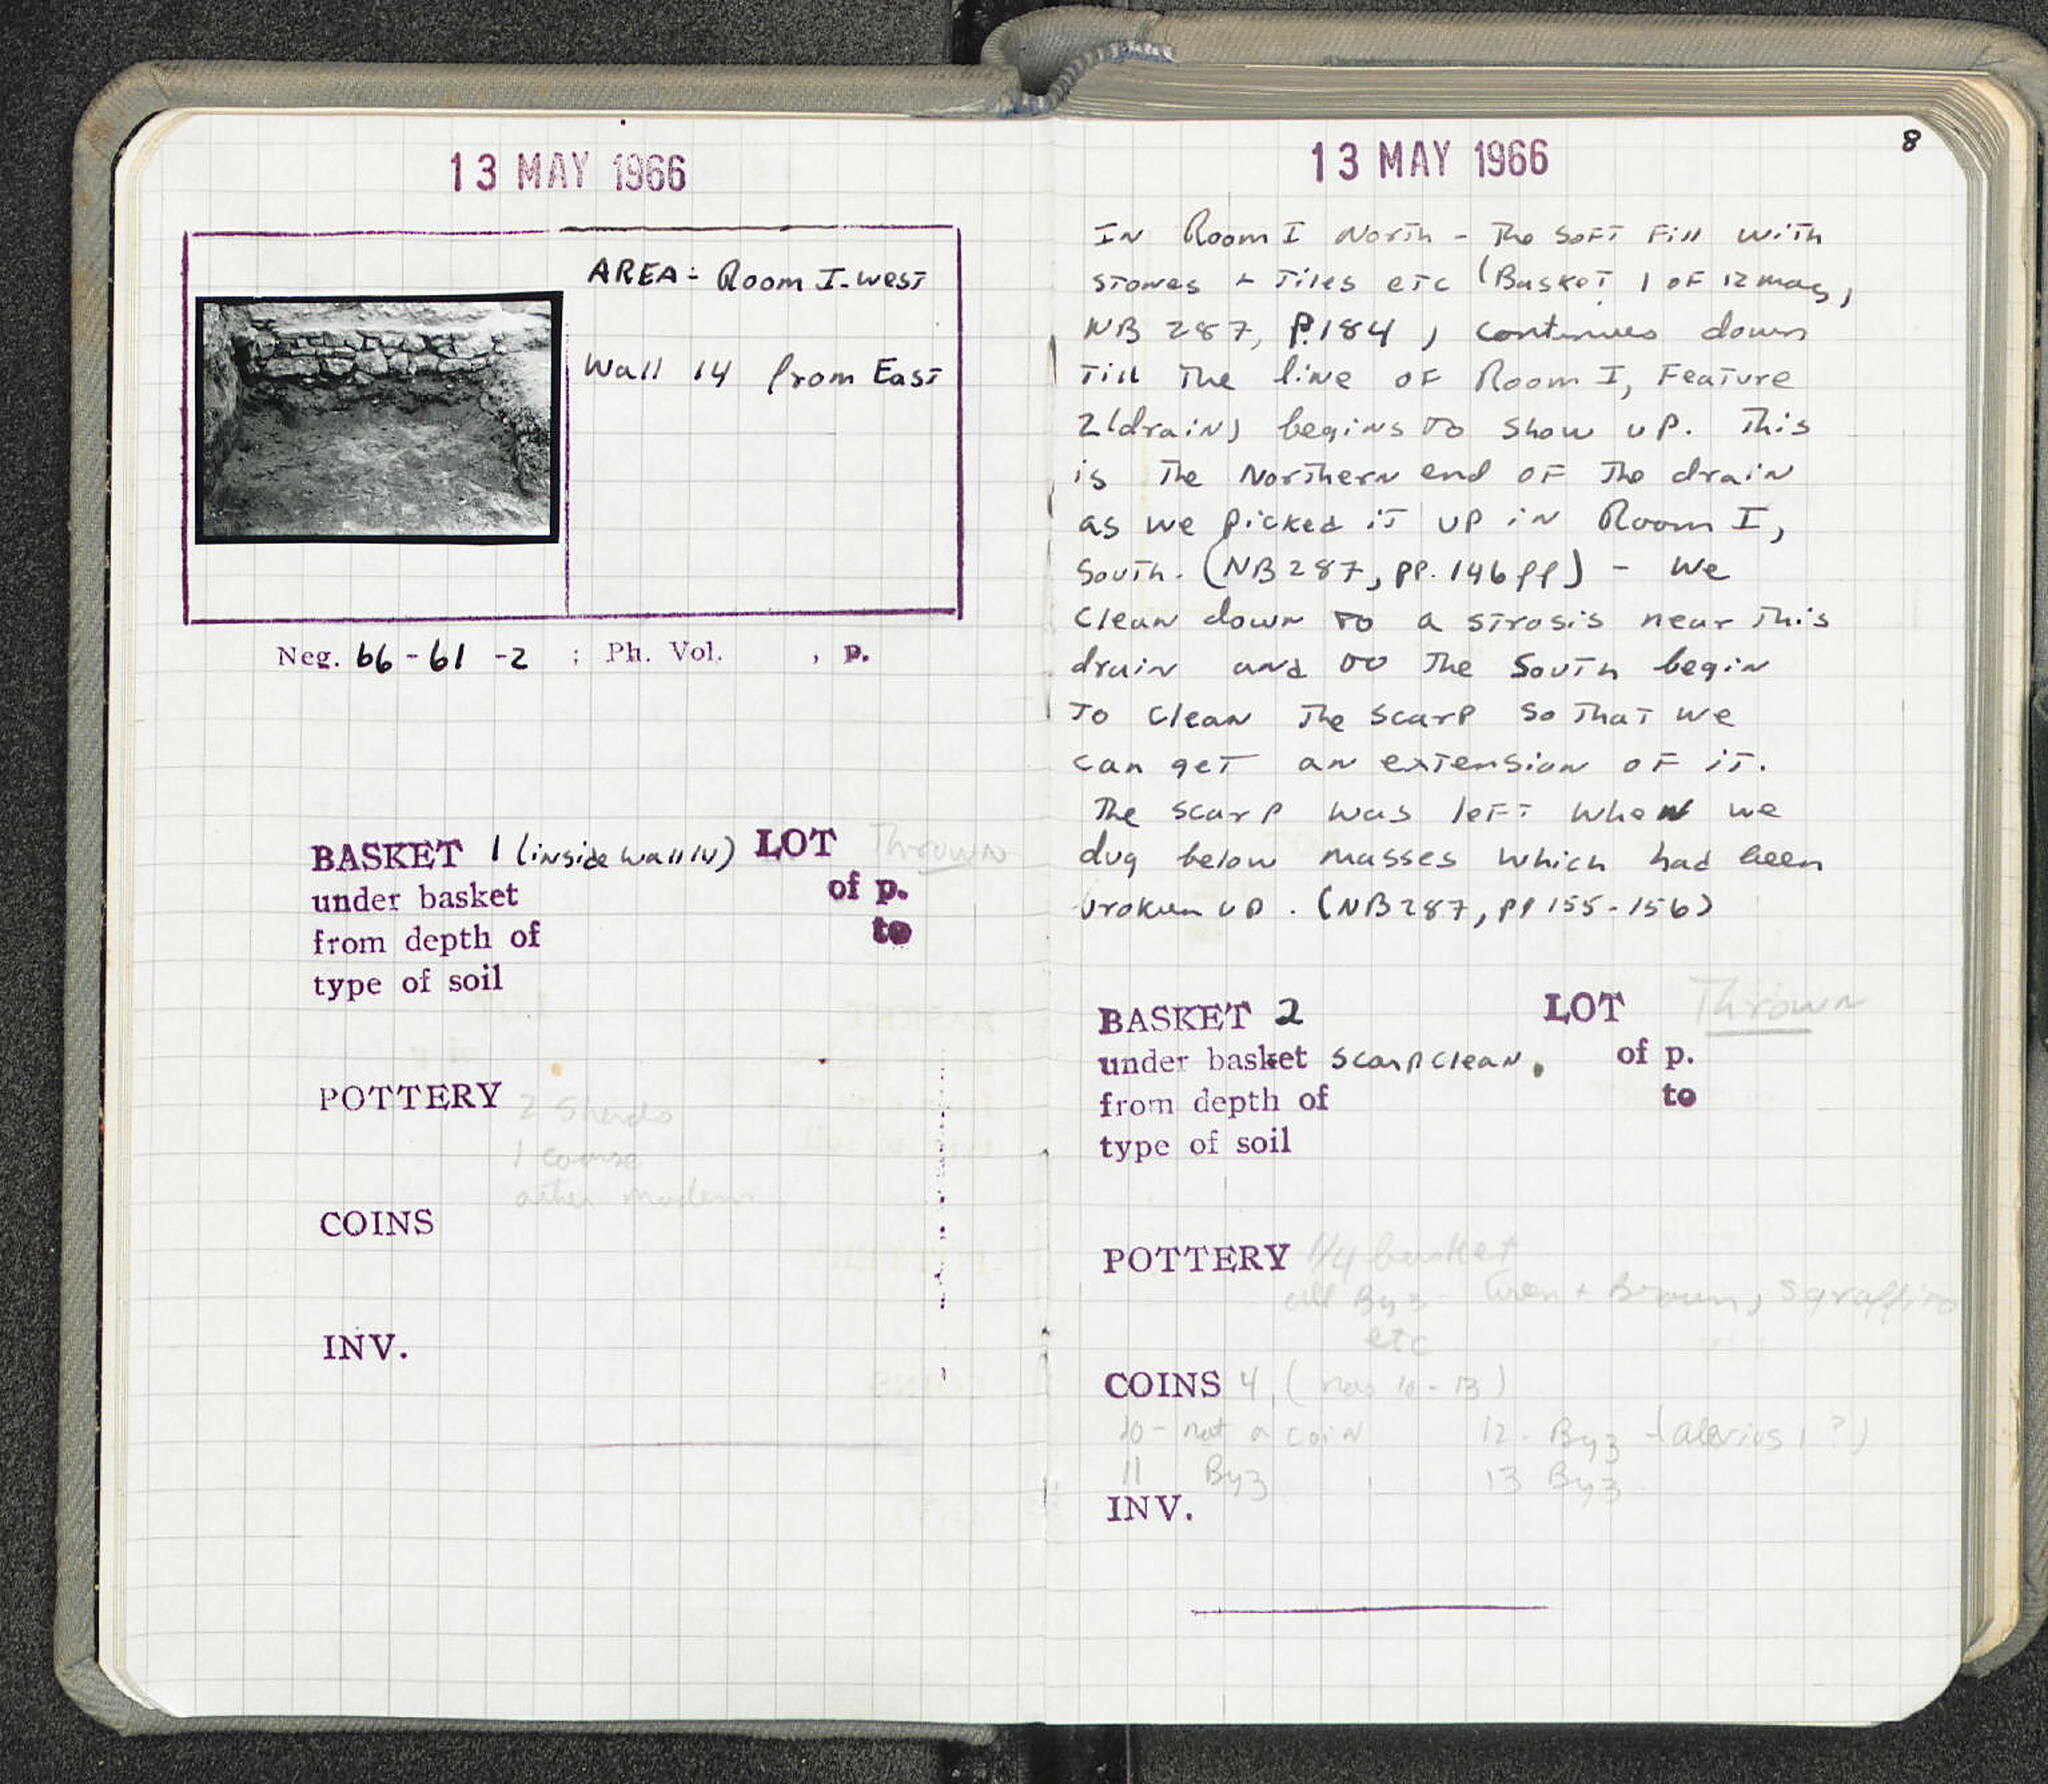 13 MAY 1966
AREA:- Room I-West
Wall 14 from East
Neg. 66-61-2 ; Ph. Vol. , p.
BASKET 1 (inside Wall 14) LOT Thrown
under basket of p.
from depth of to
type of soil
POTTERY 2 Sherds
1 coarse
other modern
COINS
INV.
8
13 MAY 1966
In Room I North - The soft fill with
stones + tiles etc (Basket 1 of 12 may,
NB 287, P.184) continues down
till the line of Room I, Feature
2 (drain) begins to show up. This
is the Northern end of the drain
as we picked it up in Room I,
South. (NB 287, pp. 146 ff) - We
clean down to a strosis near this
drain and to the South begin
to clean the scarp so that we
can get an extension of it.
The scarp was left when we
dug below masses which had been
broken up. (NB 287, pp 155-156)
BASKET 2 LOT Thrown
under basket scarp clean. of p.
from depth of to
type of soil
POTTERY 1/4 basket
all Byz - Green + Brown, Sgraffito
etc
COINS 4, (nos 10-13)
10 - not a coin 12. Byz
11 Byz 13 Byz
INV.